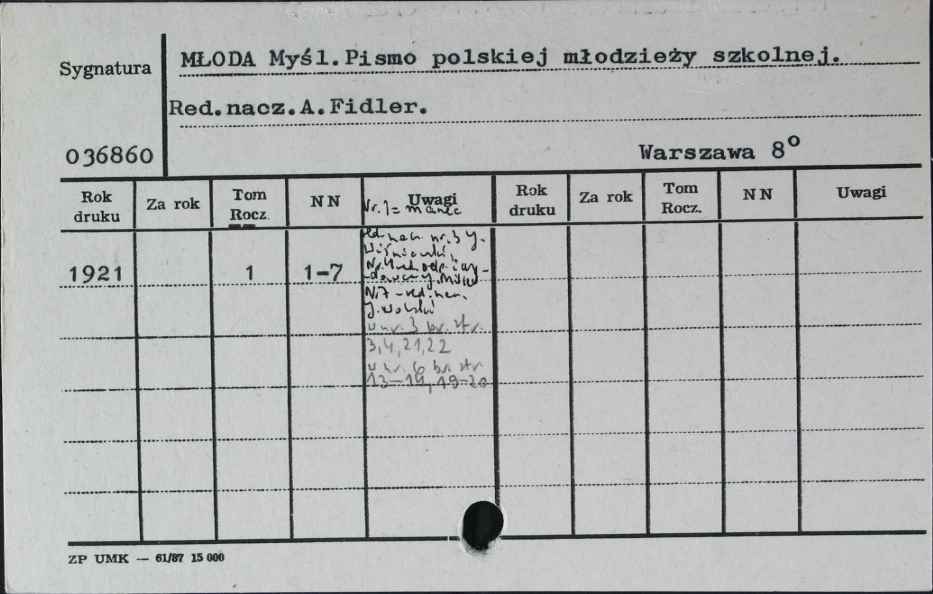 Sygnatura
MŁODA Myśl.Pismo polskiej młodzieży szkolnej.
Red.nacz.A.Fidler.
036860
Warszawa 8°
Rok druku Za rok Tom Rocz. N N Uwagi Rok druku Za rok Tom Rocz. N N Uwagi
Nr. 1 =
nr. 3 J.
1921 1 1-7
Nr 7 - red. nacz.
w nr. 3 br. str.
3,4,21,22
w nr. 6 br. str.
13-14, 19-20
ZP UMK — 61/87 15 000